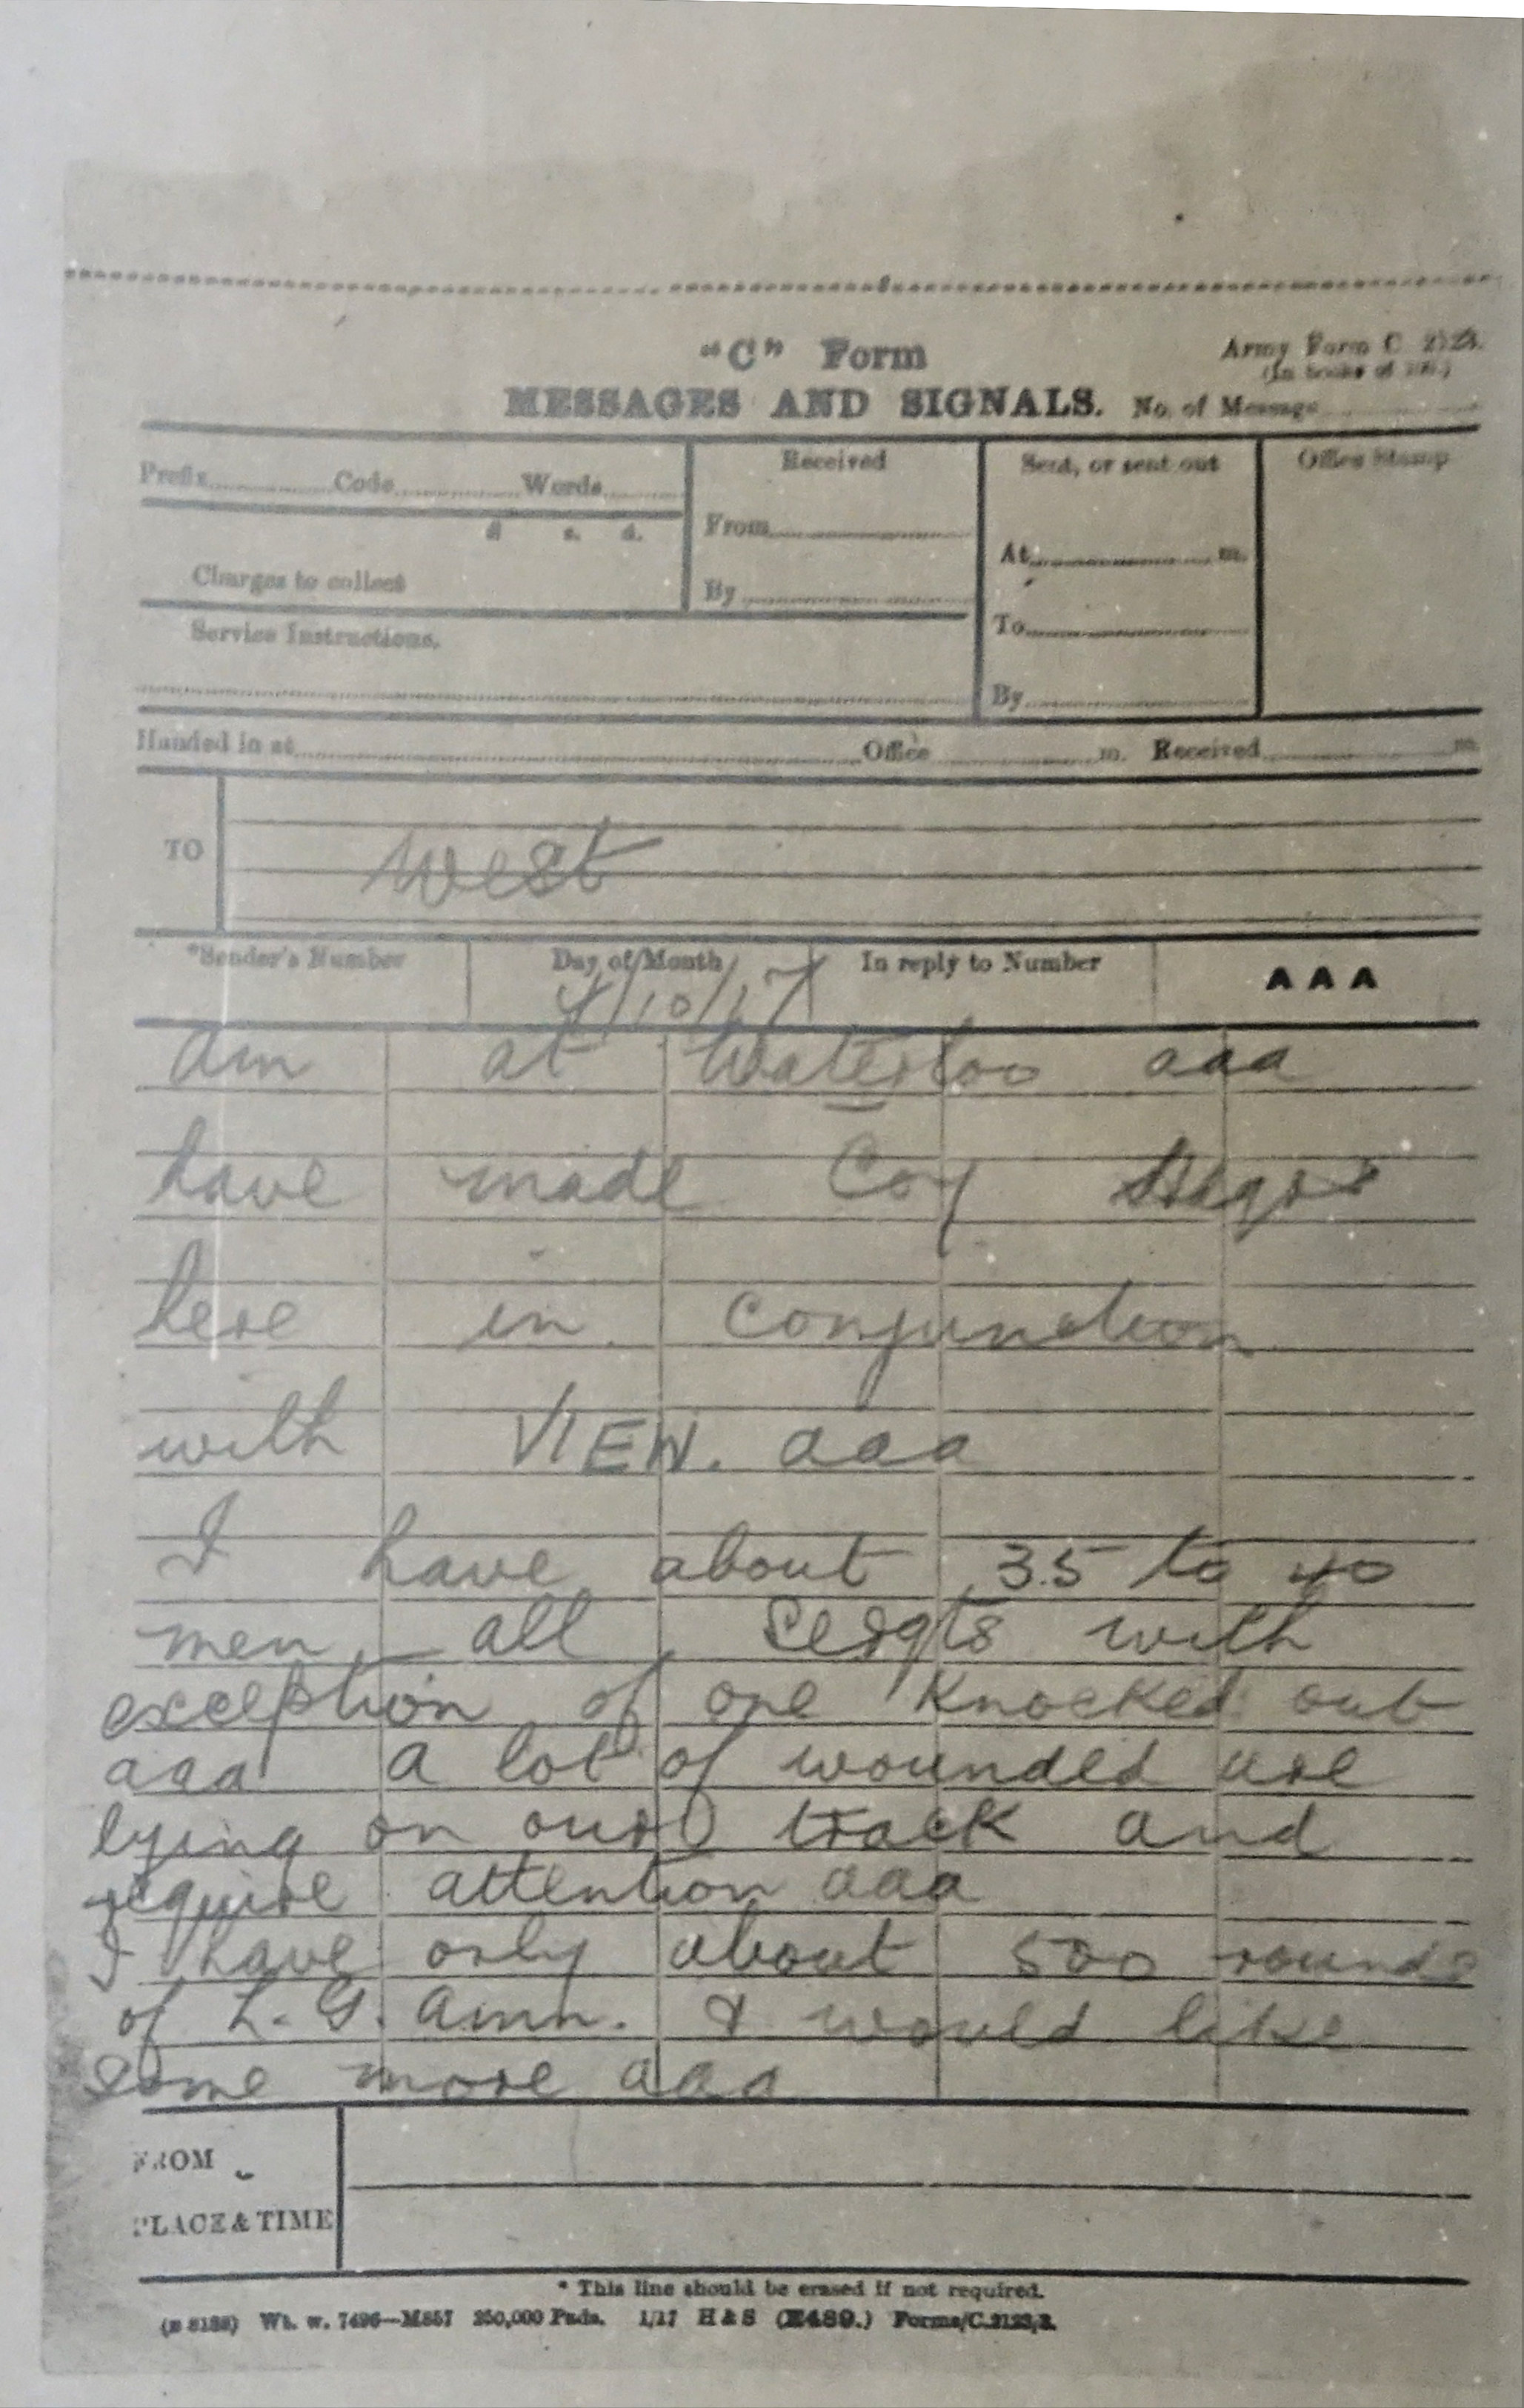 "C" Form
Army Form C. 2123.
(In books of 100.)
MESSAGES AND SIGNALS. No. of Message
Prefix Code Words
Received
Sent, or sent out
Office Stamp
£ s. d.
From
At m.
Charges to collect
By
Service Instructions.
To
By
Handed in at Office m. Received m.
TO West
*Sender's Number Day of Month In reply to Number AAA
4/10/17
Am at Waterloo aaa
have made Coy Hdqrs
here in conjunction
with VIEW. aaa
I have about 35 to 40
men all Sergts with
exception of one knocked out
aaa a lot of wounded are
lying on our track and
require attention aaa
I have only about 500 rounds
of L.G. amn. & would like
some more aaa
FROM
PLACE & TIME
* This line should be erased if not required.
Wt. w. 7496—M857 250,000 Pads. 1/17 H & S (E489.) Forms/C.2123/3.